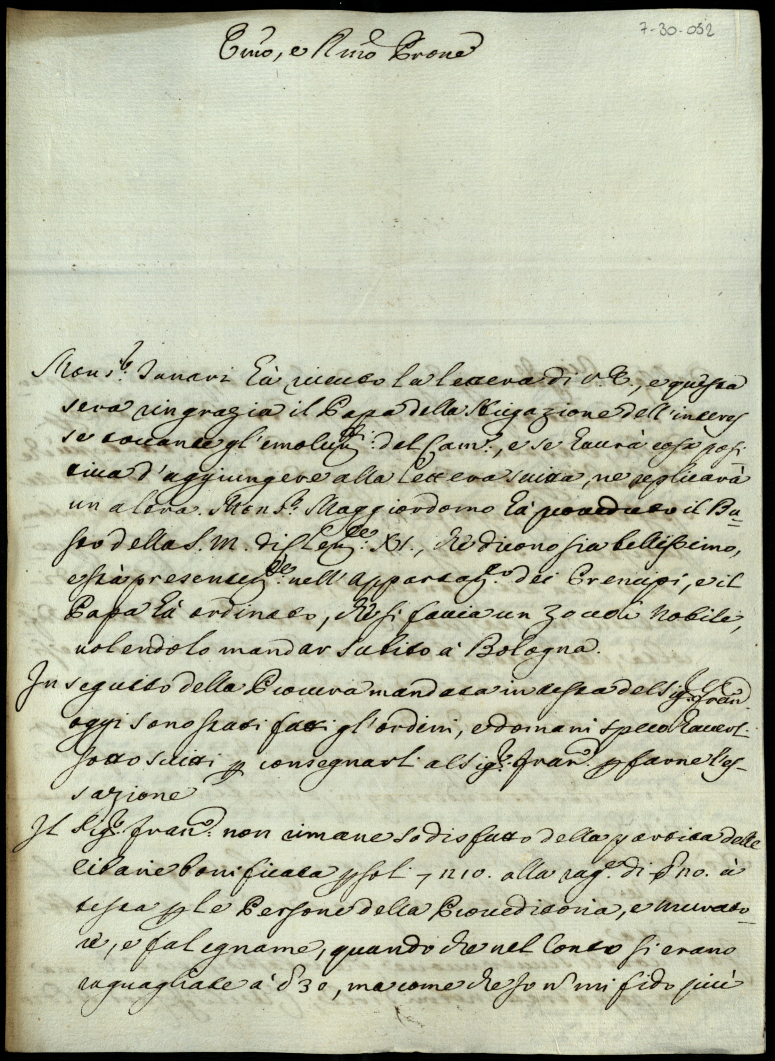 7-30-052
Emo, e Rmo Prone
Mons.re Janari hà riceuto la lettera di V.E., e questa
sera ringrazia il Papa della Mitigazione dell'interes
se toccante gl'emolum.ti del Cam.o, e se haurà cosa posi
tiua d'aggiungere alla lettera scitta, ne replicarà
un altra. Mons.r Maggiordomo hà proueduto il Bu=
sto della S.M. di Clem.te XI., che dicono sia bellissimo,
e stà presentem.te nell'Appartam.to dei Prencipi, e il
Papa hà ordinato, che si faccia un zoccolo nobile,
uolendolo mandar subito à Bologna.
In seguito della Procura mandata in testa del Sig.r Fran.co
oggi sono stati fatti gl'ordini, e domani spero hauerli
sottoscritti p consegnarli al Sig.r Fran.co p farne l'es-
sazione
Il Sig.r Fran.co non rimane sodisfatto della partita delle
cibarie bonificata p soli 7 n10. alla rag.e di n0. à
testa p le Persone della Proueditoria, e murato
re, e falegname, quando che nel Conto si erano
raguagliate à 30, ma come che Io nō mi fido più